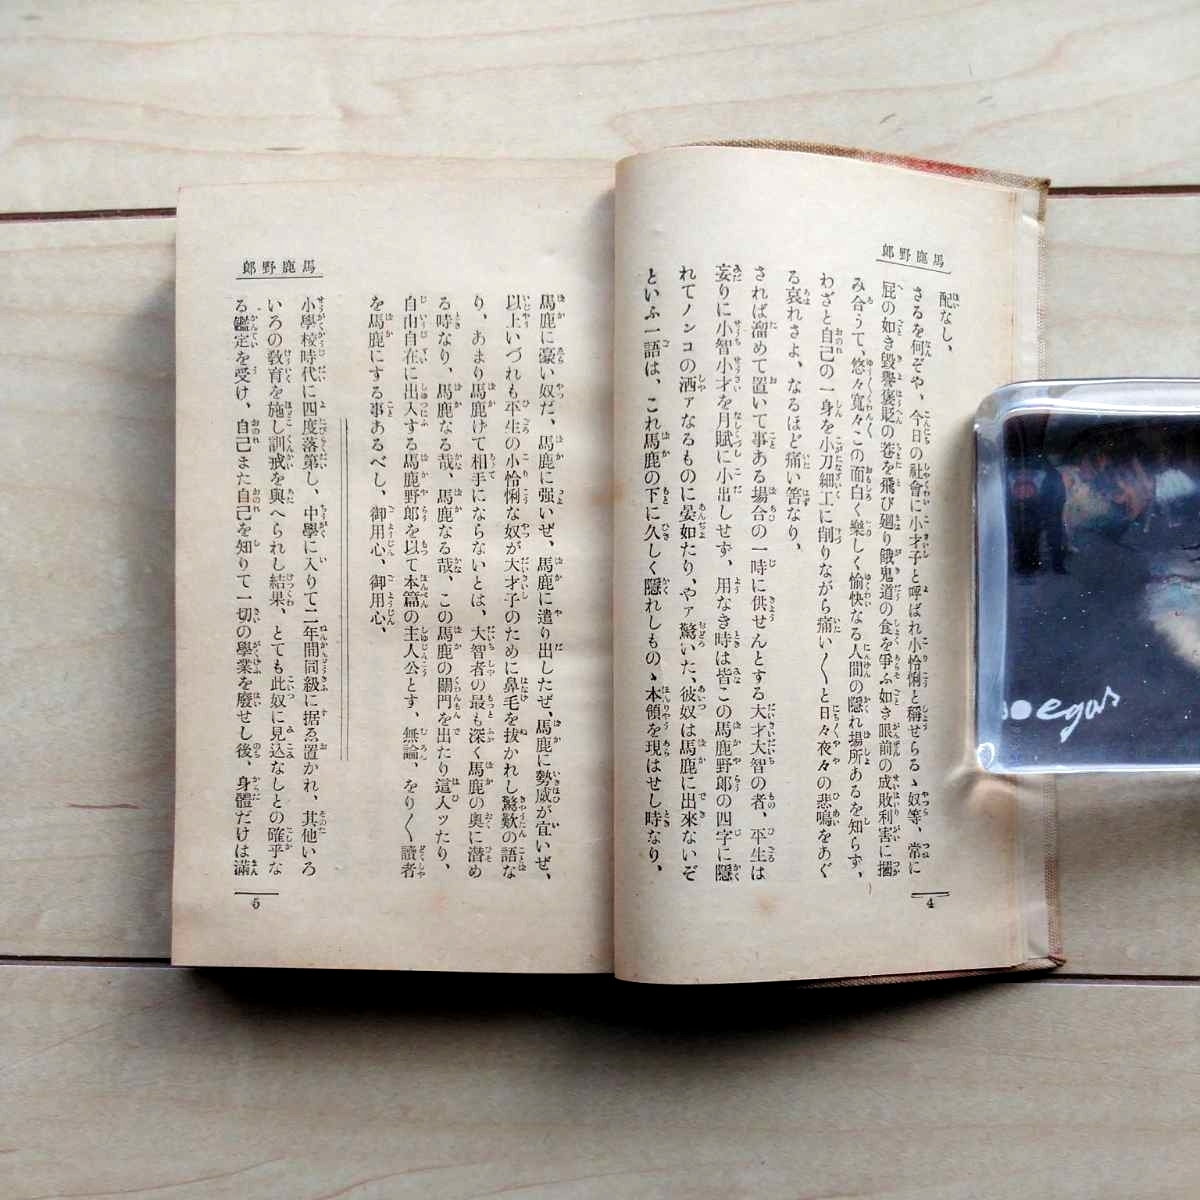 馬鹿野郎
配なし、
さるを何ぞや、今日の社會に小才子と呼ばれ小怜悧と稱せらるゝ奴等、常に
屁の如き毀譽褒貶の巷を飛び廻り餓鬼道の食を爭ふ如き眼前の成敗利害に摑
み合うて、悠々寬々この面白く樂しく愉快なる人間の隱れ場所あるを知らず、
わざと自己の一身を小刀細工に削りながら痛い〳〵と日々夜々の悲鳴をあぐ
る哀れさよ、なるほど痛い筈なり、
されば溜めて置いて事ある場合の一時に供せんとする大才大智の者、平生は
妄りに小智小才を月賦に小出しせず、用なき時は皆この馬鹿野郎の四字に隱
れてノンコの洒アなるものに晏如たり、やア驚いた、彼奴は馬鹿に出來ないぞ
といふ一語は、これ馬鹿の下に久しく隱れしものゝ本領を現はせし時なり、
4
馬鹿野郎
馬鹿に豪い奴だ、馬鹿に强いぜ、馬鹿に遣り出したぜ、馬鹿に勢威が宜いぜ、
以上いづれも平生の小怜悧な奴が大才子のために鼻毛を拔かれし驚歎の語な
り、あまり馬鹿げて相手にならないとは、大智者の最も深く馬鹿の奧に潜め
る時なり、馬鹿なる哉、馬鹿なる哉、この馬鹿の關門を出たり這入ッたり、
自由自在に出入する馬鹿野郎を以て本篇の主人公とす、無論、をり〳〵讀者
を馬鹿にする事あるべし、御用心、御用心、
小學校時代に四度落第し、中學に入りて二年間同級に据ゑ置かれ、其他いろ
いろの敎育を施し訓戒を與へられし結果、とても此奴に見込なしとの確乎な
る鑑定を受け、自己また自己を知りて一切の學業を廢せし後、身體だけは滿
5
egas